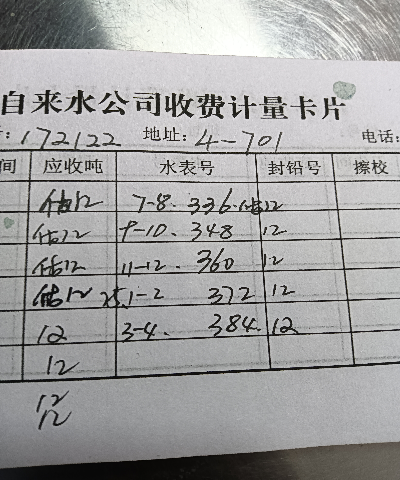 自来水公司收费计量卡片
: 172122 地址: 4-701 电话:
间 应收吨 水表号 封铅号 擦校
估12 7-8. 336. 估12
估12 9-10. 348 12
估12 11-12. 360 12
估12 25.1-2 372 12
12 3-4. 384. 12
12
12
12